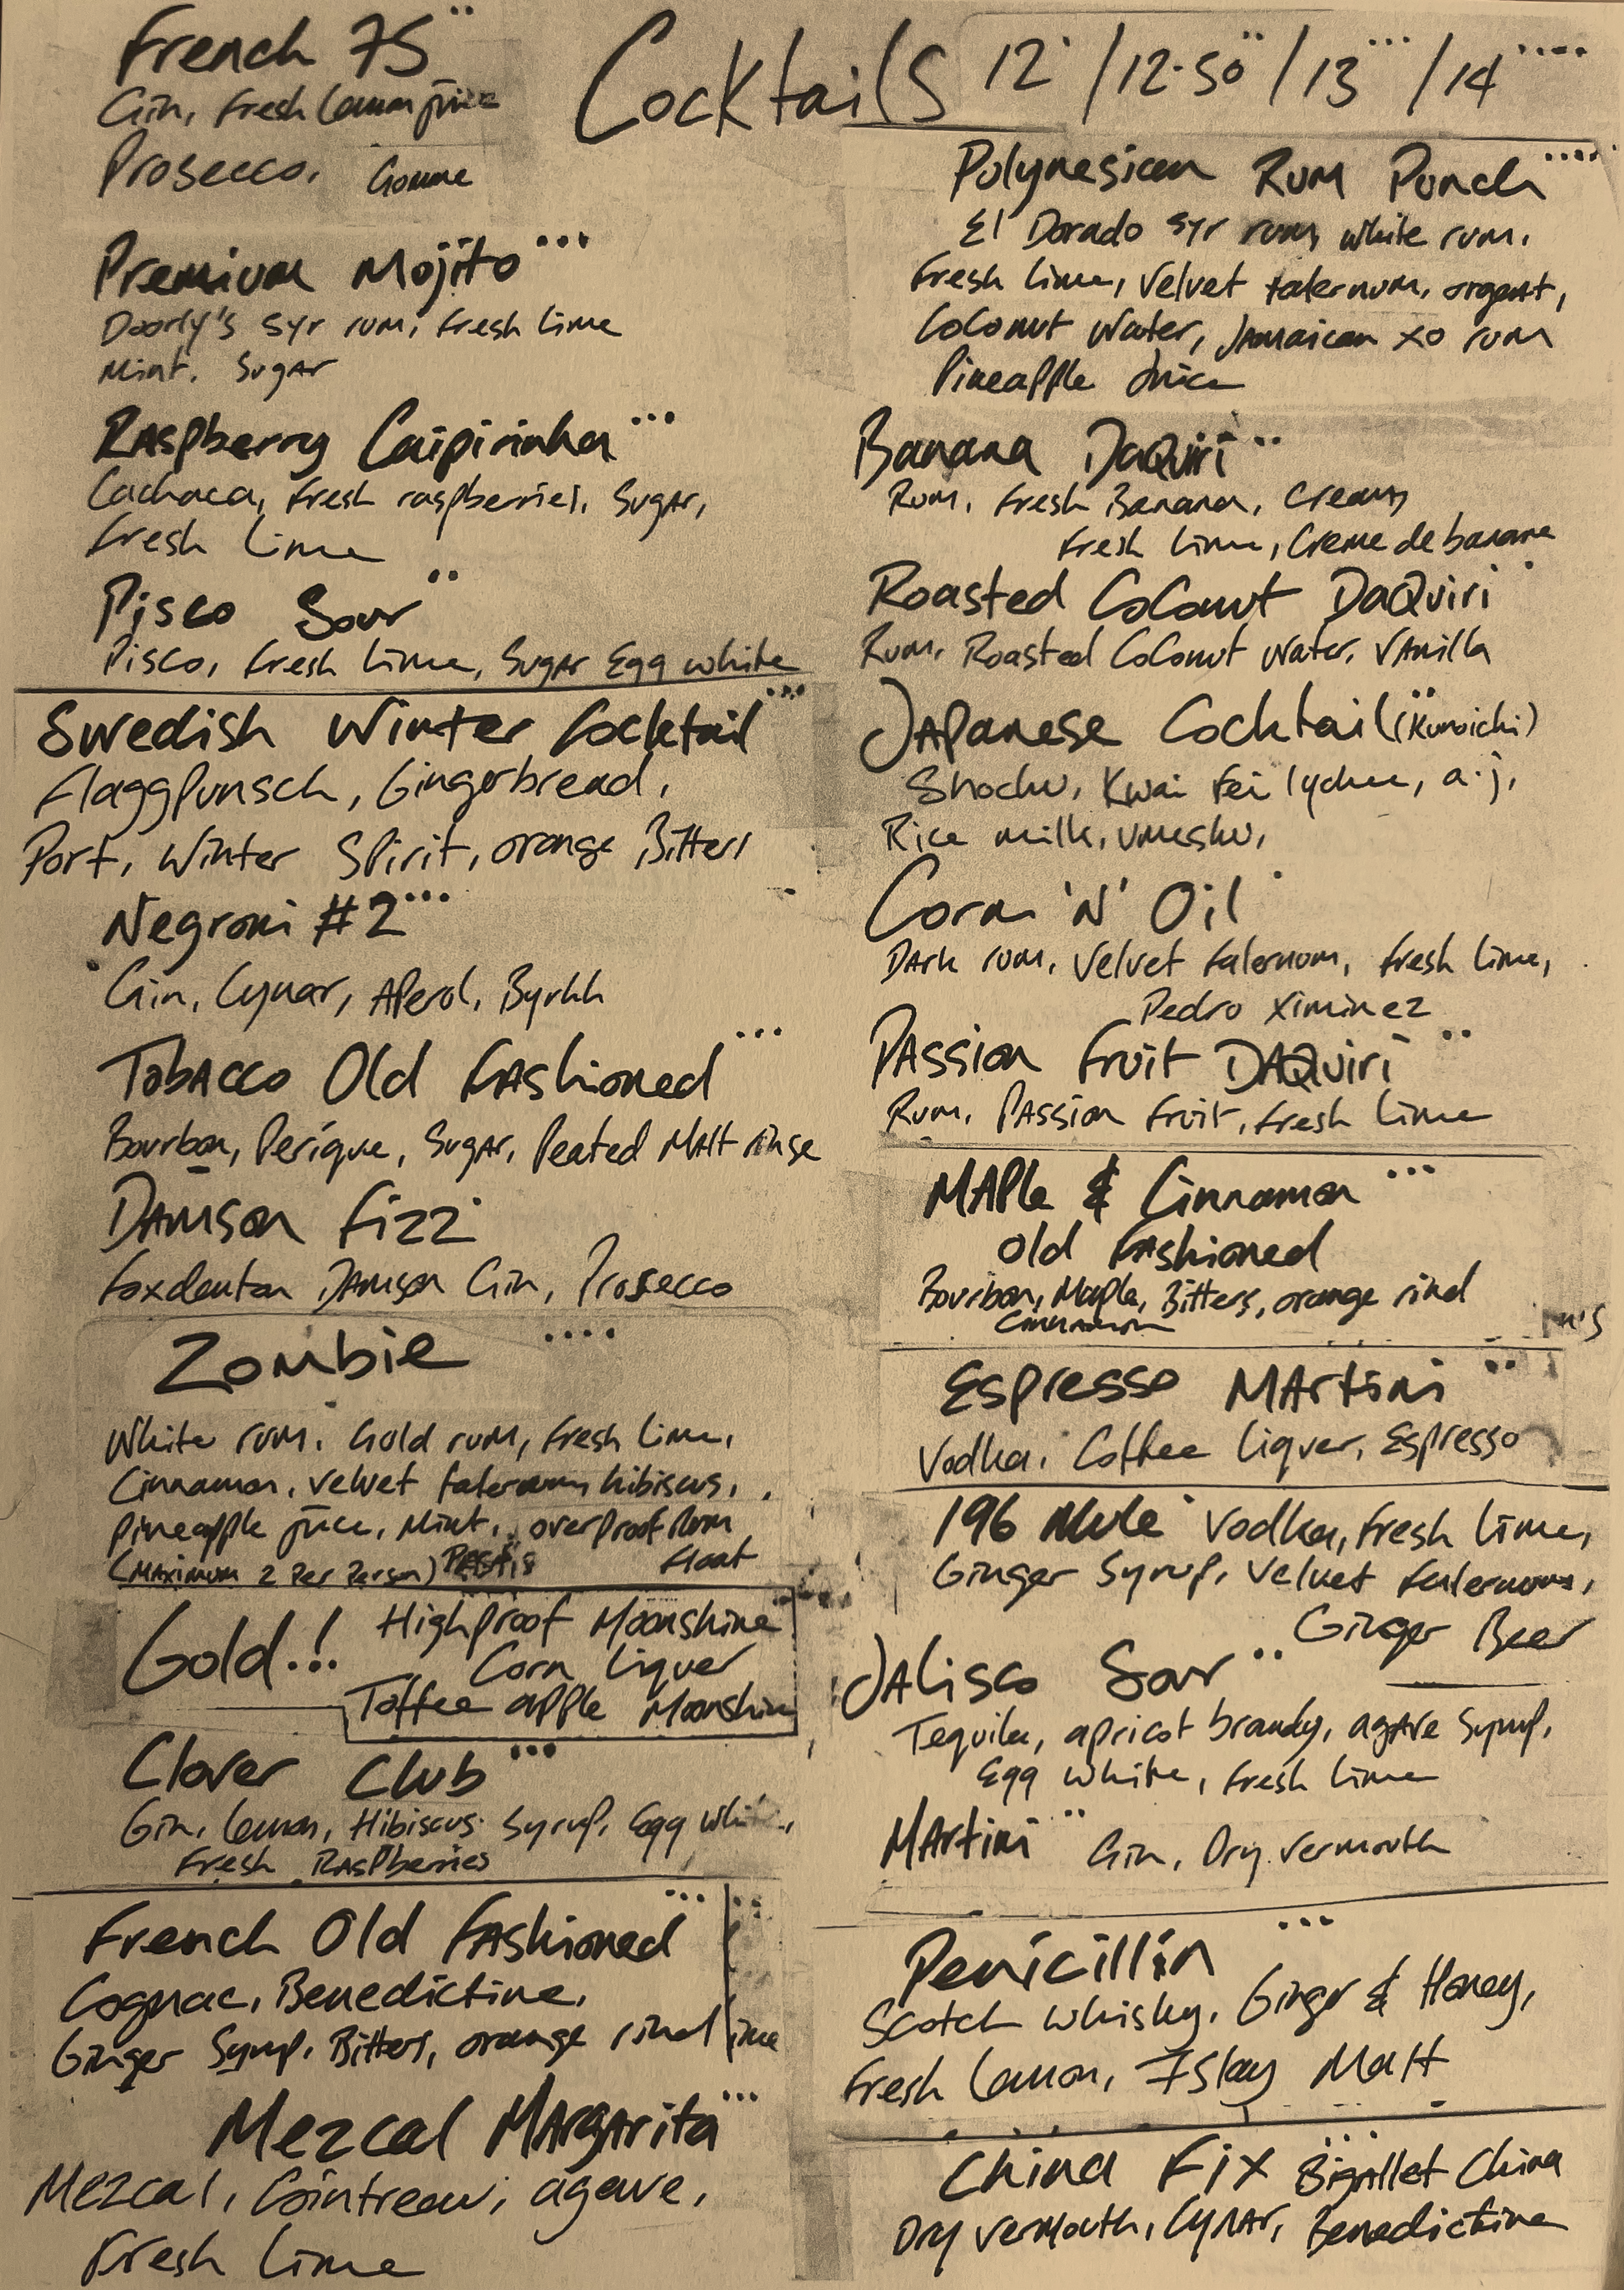 Cocktails 12· / 12·50·· / 13··· / 14····
French 75··
Gin, Fresh Lemon juice
Prosecco. Gomme
Premium Mojito···
Doorly's 5yr rum, Fresh Lime
Mint. Sugar
Raspberry Caipirinha···
Cachaca, Fresh raspberries, Sugar,
Fresh Lime
Pisco Sour··
Pisco, Fresh Lime, Sugar Egg white
Swedish Winter Cocktail···
Flaggpunsch, Gingerbread,
Port, Winter Spirit, orange Bitters
Negroni #2···
Gin, Cynar, Aperol, Byrhh
Tobacco Old Fashioned···
Bourbon, Perique, Sugar, Peated Malt rinse
Damson Fizz·
Foxdenton Damson Gin, Prosecco
Zombie ····
White rum. Gold rum, Fresh Lime,
Cinnamon, Velvet falernum, hibiscus,
Pineapple juice, Mint, overproof Rum
(Maximum 2 Per Person) Pastis Float
Gold..! Highproof Moonshine
Corn Liquer
Toffee apple Moonshine
Clover Club···
Gin, Lemon, Hibiscus Syrup, Egg White,
Fresh Raspberries
French Old Fashioned···
Cognac, Benedictine,
Ginger Syrup, Bitters, orange rind
Mezcal Margarita···
Mezcal, Cointreau, agave,
Fresh Lime
Polynesian Rum Punch····
El Dorado 5yr rum, White rum,
Fresh Lime, Velvet falernum, orgeat,
Coconut Water, Jamaican XO rum
Pineapple Juice
Banana Daquiri··
Rum, Fresh Banana, Cream,
Fresh Lime, Creme de banane
Roasted Coconut Daquiri·
Rum, Roasted Coconut Water, Vanilla
Japanese Cocktail·· (Kunoichi)
Shochu, Kwai Fei lychee, a.j,
Rice milk, umeshu,
Corn 'N' Oil·
Dark rum, Velvet falernum, Fresh Lime,
Pedro Ximinez
Passion Fruit Daquiri··
Rum, Passion Fruit, Fresh Lime
Maple & Cinnamon···
Old Fashioned
Bourbon, Maple, Bitters, orange rind
Cinnamon
Espresso Martini··
Vodka, Coffee Liquer, Espresso
196 Mule· Vodka, Fresh Lime,
Ginger Syrup, Velvet falernum,
Ginger Beer
Jalisco Sour··
Tequila, apricot brandy, agave Syrup,
Egg White, Fresh Lime
Martini·· Gin, Dry Vermouth
Penicillin···
Scotch Whisky, Ginger & Honey,
Fresh Lemon, Islay Malt
China Fix··· Bigallet China
Dry Vermouth, Cynar, Benedictine